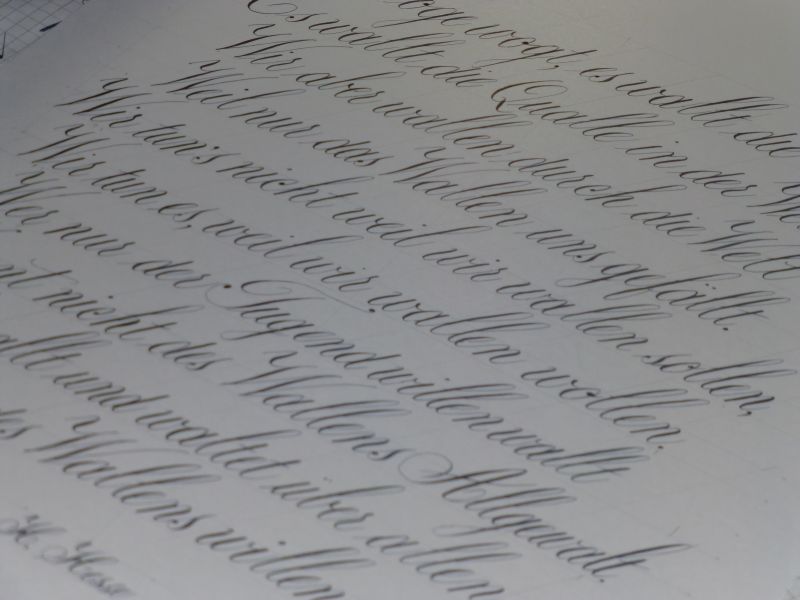 woge wogt, es wallt die
Es wallt die Qualle in der We
Wir aber wallen durch die Welt
Weil nur das Wallen uns gefällt.
Wir tun's nicht weil wir wallen sollen,
Wir tun es, weil wir wallen wollen.
Wer nur der Tugend willen wallt
nt nicht des Wallens Allgewalt.
allt und waltet über allen
des Wallens willen
H. Hesse